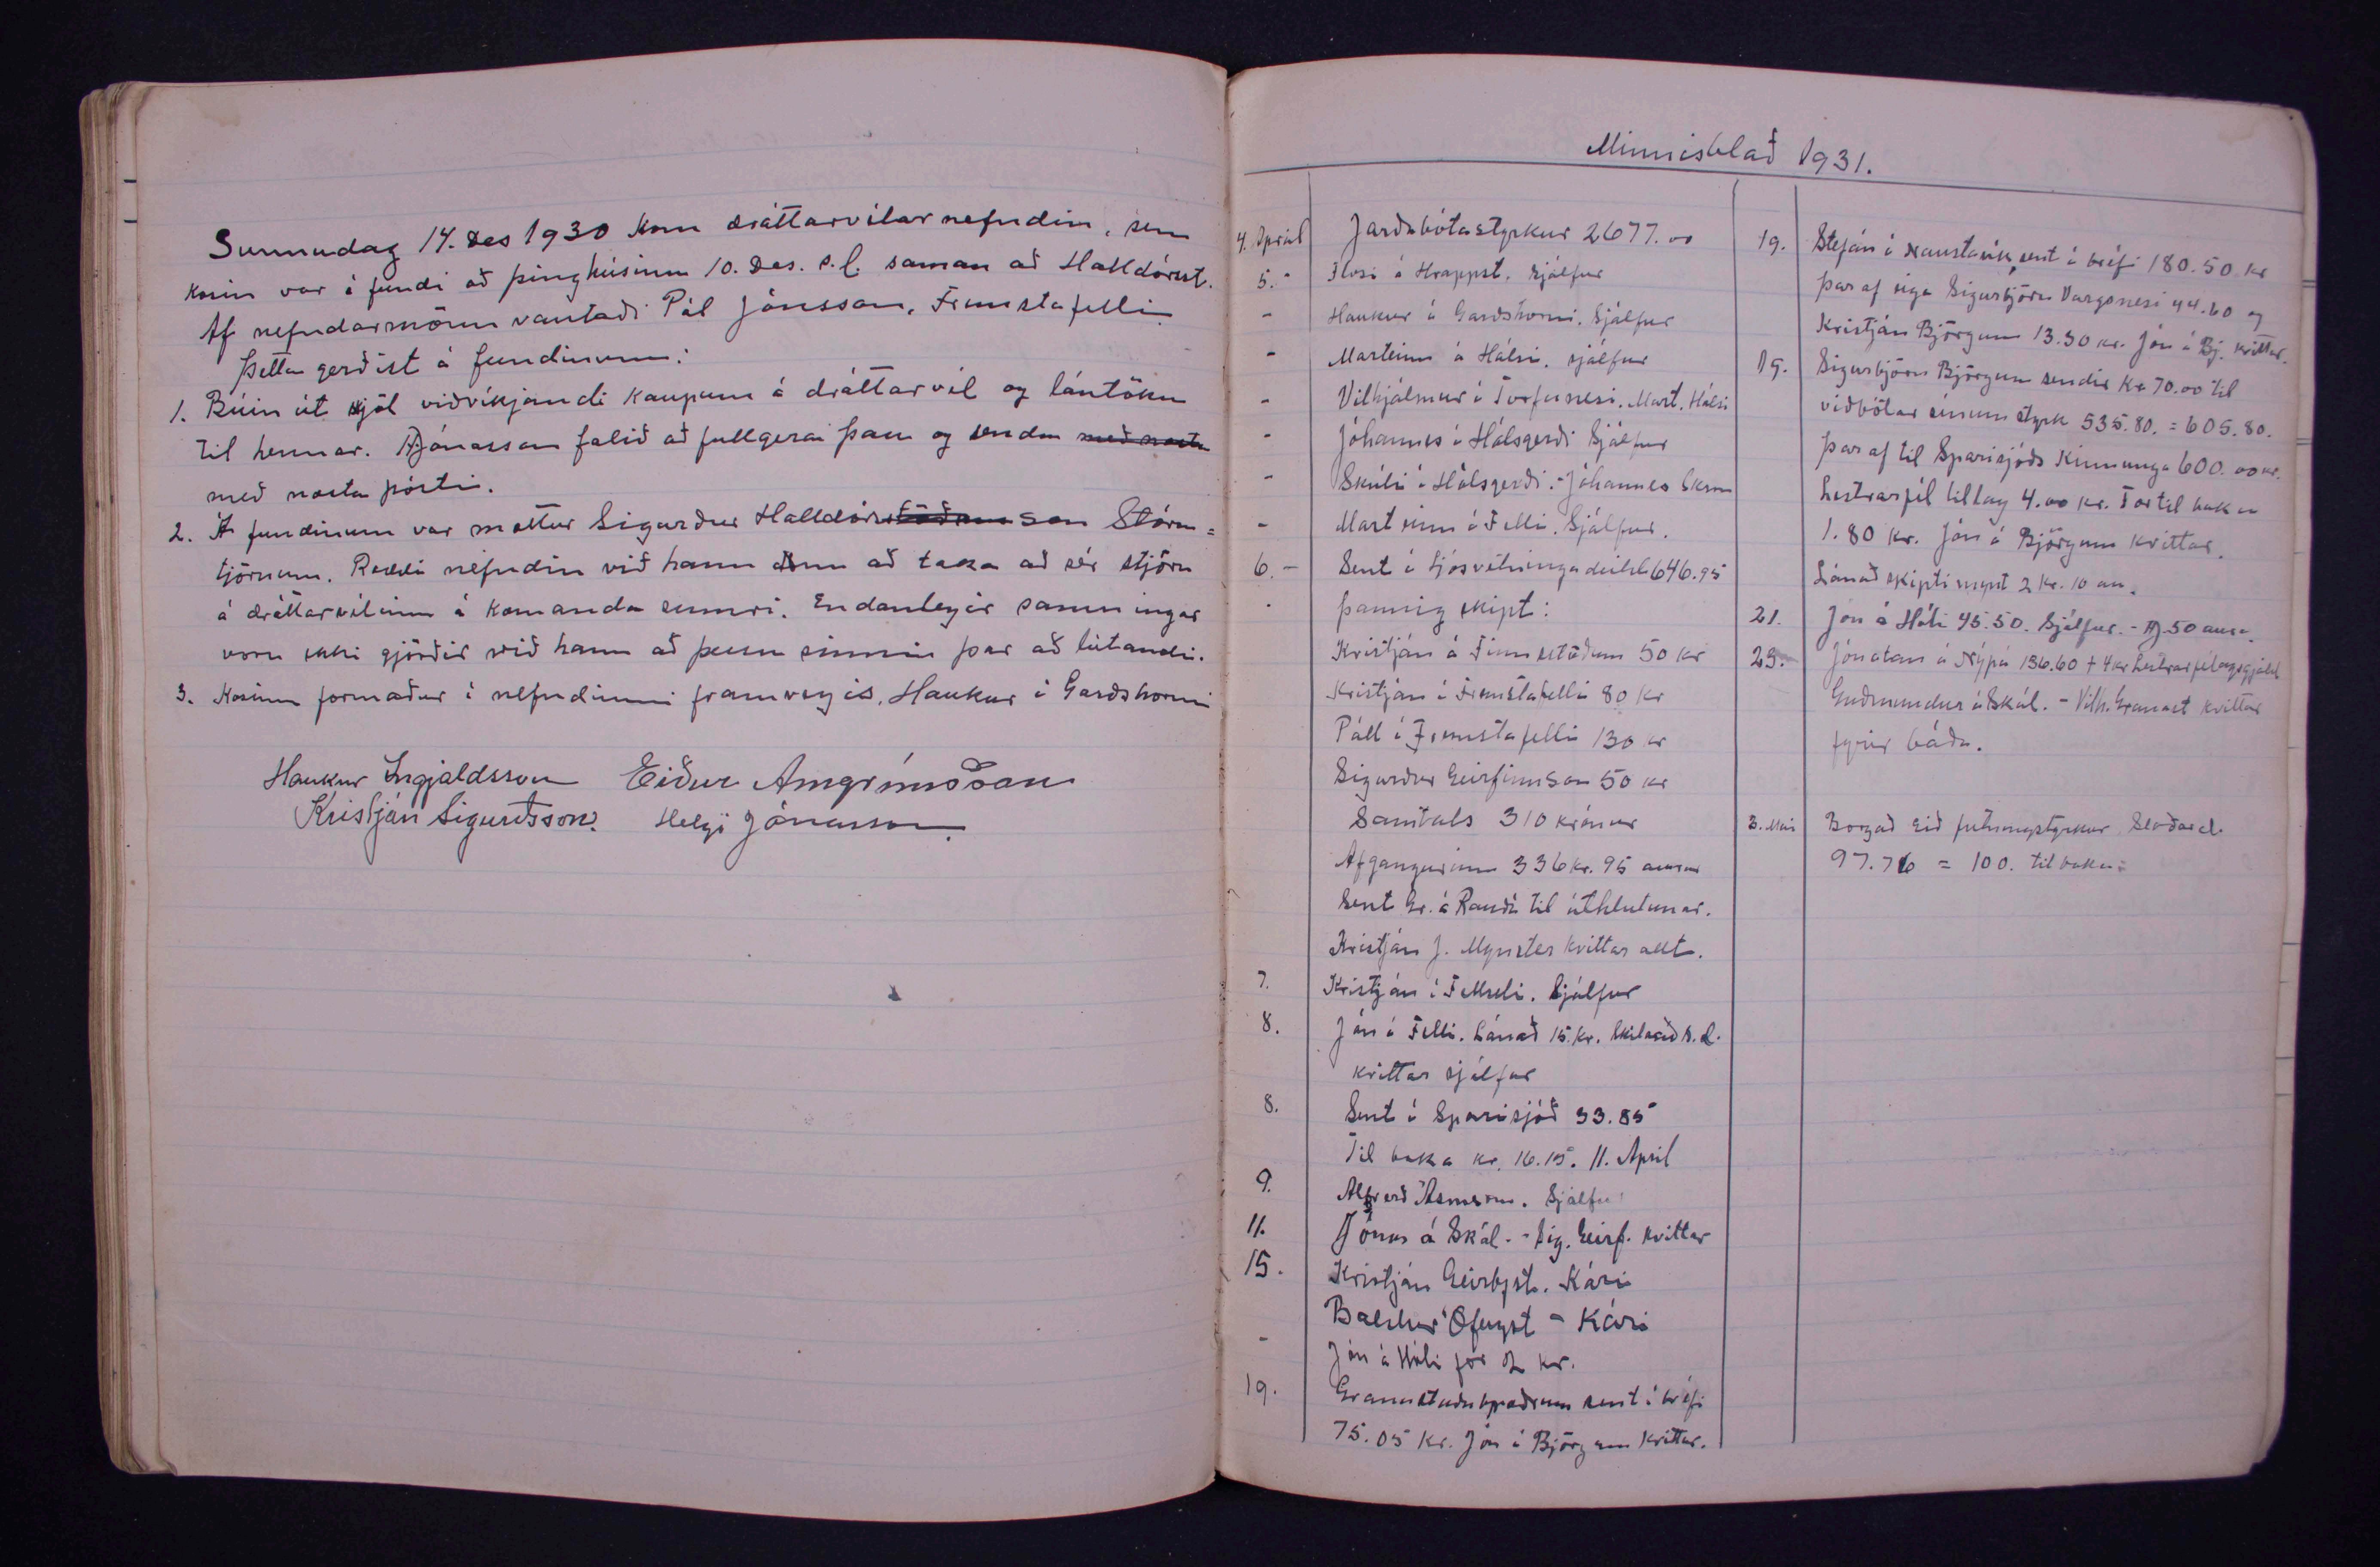 Sunnudag 14. Des 1930 kom dráttarvélarnefndin, sem
kosin var á fundi að þinghúsinu 10. Des. s.l. saman að Halldórsst.
Af nefndarmönn vantaði Pál Jónsson, Fremstafelli.
Þetta gerðist á fundinum:
1. Búin út skjöl viðvíkjandi kaupum á dráttarvél og lántöku
til hennar. H Jónassoni falið að fullgera þau og senda með næsta
með næsta pósti.
2. Á fundinum var mættur Sigurður Halldórsson Stóru=
tjörnum. Ræddi nefndin við hann um að taka að sér stjórn
á dráttarvélinni á komanda sumri. Endanlegir samningar
voru ekki gjörðir við hann að þessu sinni þar að lútandi.
3. Kosinn formaður í nefndinni framvegis, Haukur í Garðshorni
Haukur Ingjaldsson Eiður Arngrímsson
Kristján Sigurðsson. Helgi Jónasson.
Minnisblað 1931.
4. Apríl Jarðabótastyrkur 2677.00
5. - Flosi á Hrappst. sjálfur
- Haukur í Garðshorni. Sjálfur
- Marteinn á Hálsi. sjálfur
- Vilhjálmur í Torfunesi. Mart. Hálsi
- Jóhannes í Hálsgerði Sjálfur
- Skúli í Hálsgerði. - Jóhannes Skson
- Marteinn í Felli. Sjálfur.
6. - Sent í Ljósvetningadeild 646.95
- þannig skipt:
Kristján á Finnsstöðum 50 kr
Kristján í Fremstafelli 80 kr
Páll í Fremstafelli 130 kr
Sigurður Geirfinnsson 50 kr
Samtals 310 krónur
Afgangurinn 336 kr. 95 aurar
Sent Gr. á Rauðá til úthlutunar.
Kristján J. Mýnster kvittar allt.
7. Kristján í Fellseli. Sjálfur
8. Jón í Felli. Lánað 15 kr. Skilað s.d.
kvittar sjálfur
8. Sent í Sparisjóð 33.85
Til baka kr. 16.15. 11. April
9. Alfreð Ásmsson. Sjálfur
11. Jónas á Skál. - Sig. Geirf. kvittar
15. Kristján Geirbjst. Kári
Baldur Ófeigst - Kári
- Jón á Hóli fór 2 kr.
19. Granastaðabræðrum sent í bréfi
75.05 kr. Jón í Björgum kvittar.
19. Stefán í Naustavík, sent í bréfi 180.50 kr
Þar af eiga Sigurbjörn Vargsnesi 44.60 og
Kristján Björgum 13.30 kr. Jón á Bj. kvittar.
19. Sigurbjörn Björgum sendir kr 70.00 til
viðbótar sínum styrk 535.80. = 605.80.
Þar af til Sparisjóðs Kinnunga 600.00 kr.
Lestrarfél tillag 4.00 kr. Tor til baka
1.80 kr. Jón á Björgum kvittar.
Lánað skiptimynt 2 kr. 10 au.
21. Jón á Hóli 45.50. Sjálfur. - HJ. 50 aura.
23. Jónatan á Nýpá 136.60 + 4 kr Lestrarfélagsgjald
Guðmundur á Skál. - Vilh. Granast kvittar
fyrir báða.
3. Maí Borgað Eið
97.76 = 100. til baka: